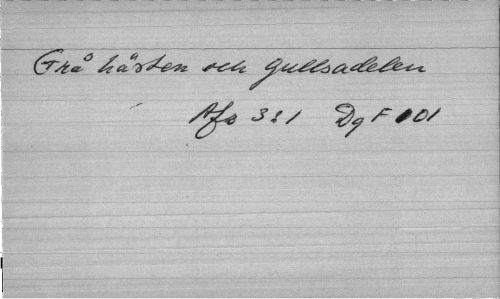 Grå hästen och gullsadelen
Afs 3:1 DgF 101